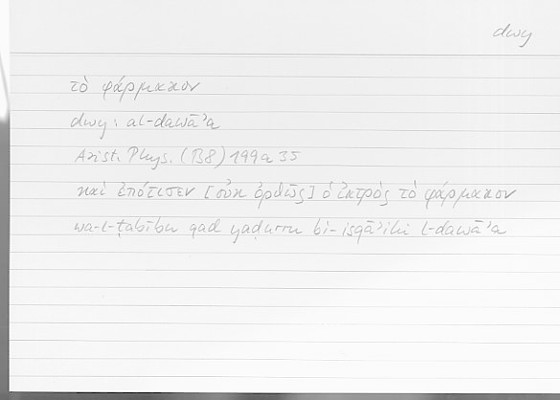 dwy
τὸ φάρμακον
dwy: al-dawāʾa
Arist. Phys. (B8) 199a35
καὶ ἐπότισεν [οὐκ ὀρθῶς] ὁ ἰατρὸς τὸ φάρμακον
wa-l-ṭabību qad yaḍurru bi-isqāʾihi l-dawāʾa